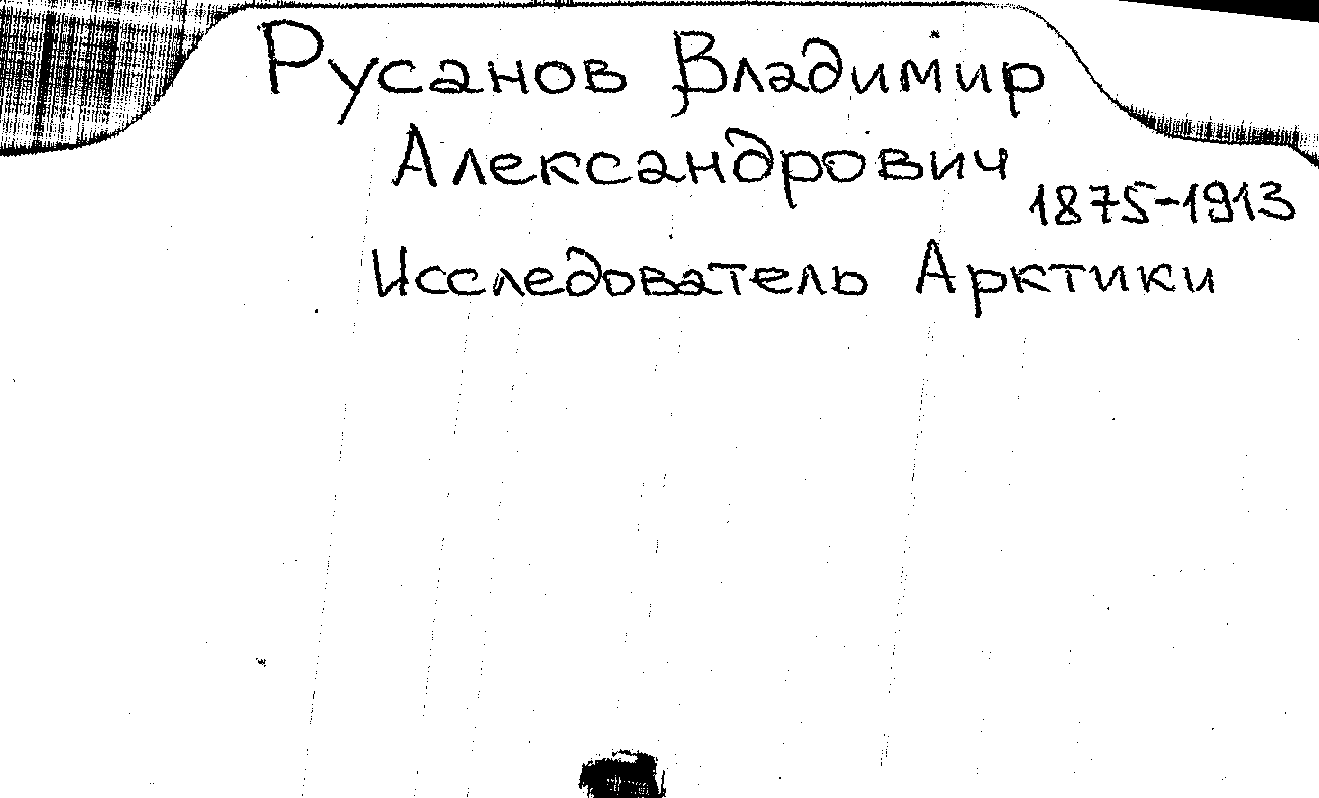 Русанов Владимир
Александрович
1875-1913
Исследователь Арктики